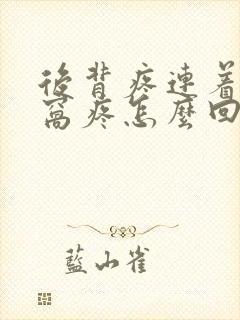 後背疼連着
窩疼怎麼回
藍小雀